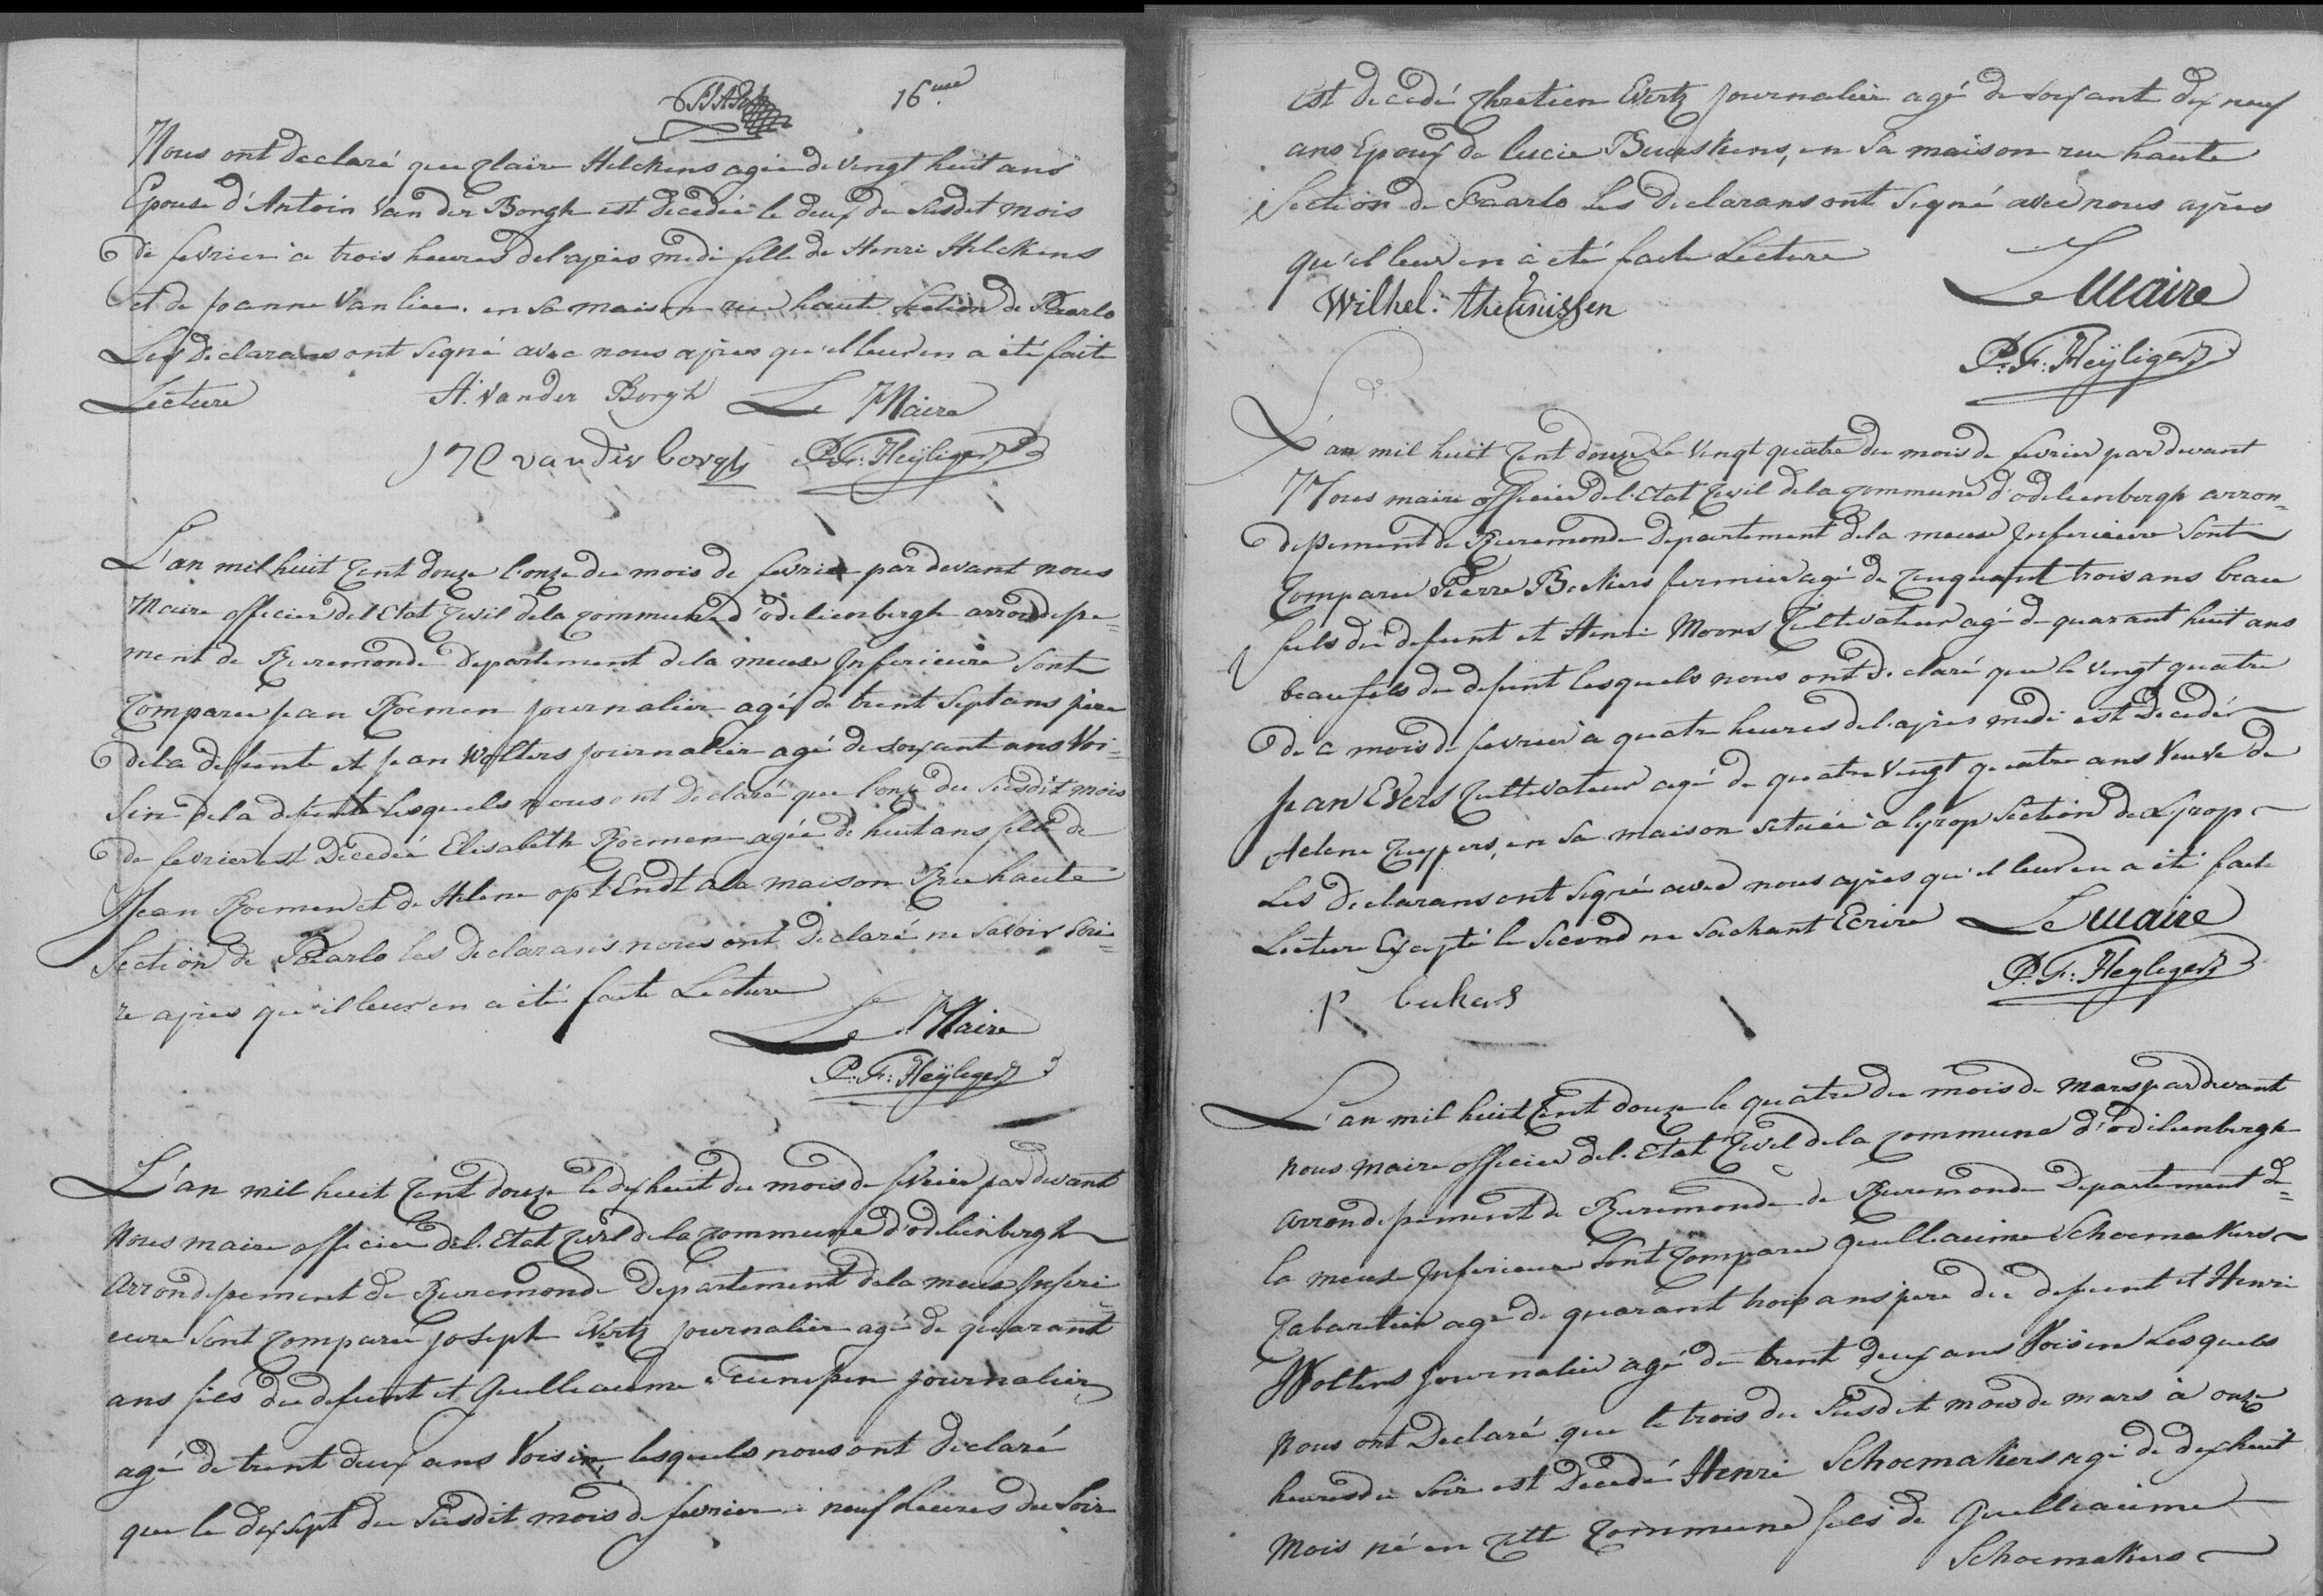 16me
Nous ont declaré que Claire Hilckens agée de vingt huit ans
Epouse d'Antoin Van der Borgh est decedée le deux du susdit mois
de fevrier a trois heures del'apres midi fille de Henri Hilckens
et de Joanne Van lieu. en sa maison rue haute Section de Paarlo
Les declarans ont signé avec nous apres qu'il leur en a été faite
Lecture A. Vander Borgh Le Maire
van der borgh P. F. Heÿligers
L'an mil huit Cent douze l'onze du mois de fevrier par devant nous
Maire officier del'Etat Civil dela Commune d'odelienbergh arrondisse=
ment de Ruremonde Departement dela meuse Inferieure Sont
Comparu Jean Roemen journalier agé de trent Sept ans pere
dela defunte et Jean Wolters journalier agé de soixant ans Voi=
sin dela defunte lesquels nous ont declaré que l'onze du Susdit mois
de fevrier est Decedée Elisabeth Roemen agée de huit ans fille de
Jean Roemen et de Helene op t Endt a la maison Rue haute
Section de Paarlo les declarans nous ont declaré ne savoir Ecri=
re apres qu'il leur en a été faite Lecture
Le Maire
P. F. Heÿligers
L'an mil huit Cent douze le dixhuit du mois de fevrier par devant
Nous maire officier del. Etat Civil dela Commune d'odelienbergh
Arrondissement de Ruremonde Departement dela meuse Inferi=
eure Sont Comparu Joseph Evertz journalier agé de quarant
ans fils du defunt et Guilleaume Teunissen journalier
agé de trent deux ans Voisin, lesquels nous ont declaré
que le dix sept du Susdit mois de fevrier a neuf heures du Soir
Est decedé Chretien Evertz journalier agé de soixant dix neuf
ans Epoux de lucie Buskens, en Sa maison rue haute
Section de Paarlo Les declarans ont Signé avec nous apres
qu'il leur en à eté faite Lecture
Le Maire
Wilhel. theunissen
P. F. Heÿligers
L'an mil huit Cent douze le Vingt quatre du mois de fevrier par devant
Nous maire officier del. Etat Civil dela Commune d'odelienbergh arron=
dissement de Ruremonde Departement dela meuse Inferieure Sont
Comparu Pierre Beckers fermier agé de Cinquant trois ans beau
fils du defunt et Henri Moors Cultivateur agé de quarant huit ans
beau fils du defunt lesquels nous ont declaré que le Vingt quatre
de c mois de fevrier à quatre heures del'apres midi est Decedé
Jean Evers Cultivateur agé de quatre Vingt quatre ans Veuve de
Helene Cuypers, en Sa maison Située a lyrop Section de Lyrop
Les Declarans ont Signé avec nous apres qu'il leur en a été faite
Lecture Excepté le Second ne Sachant Ecrire Le Maire
P. F. Heÿligers
L'an mil huit Cent douze le quatre du mois de Mars par devant
nous Maire officier del. Etat Civil dela Commune d'odilienbergh
Arrondissement de Ruremonde de Ruremonde Departement de=
la meuse Inferieure Sont Comparu Guilleaume Schoemakers
Cabaretier agé de quarant trois ans pere du defunt et Henri
Wolters journalier agé de trent deux ans Voisin Lesquels
Nous ont Declaré que le trois du Susdit mois de mars à onze
heures du Soir est Decedé Henri Schoemakers agé de dixhuit
Mois né en Cette Commune fils de Guilleaume
Schoemakers